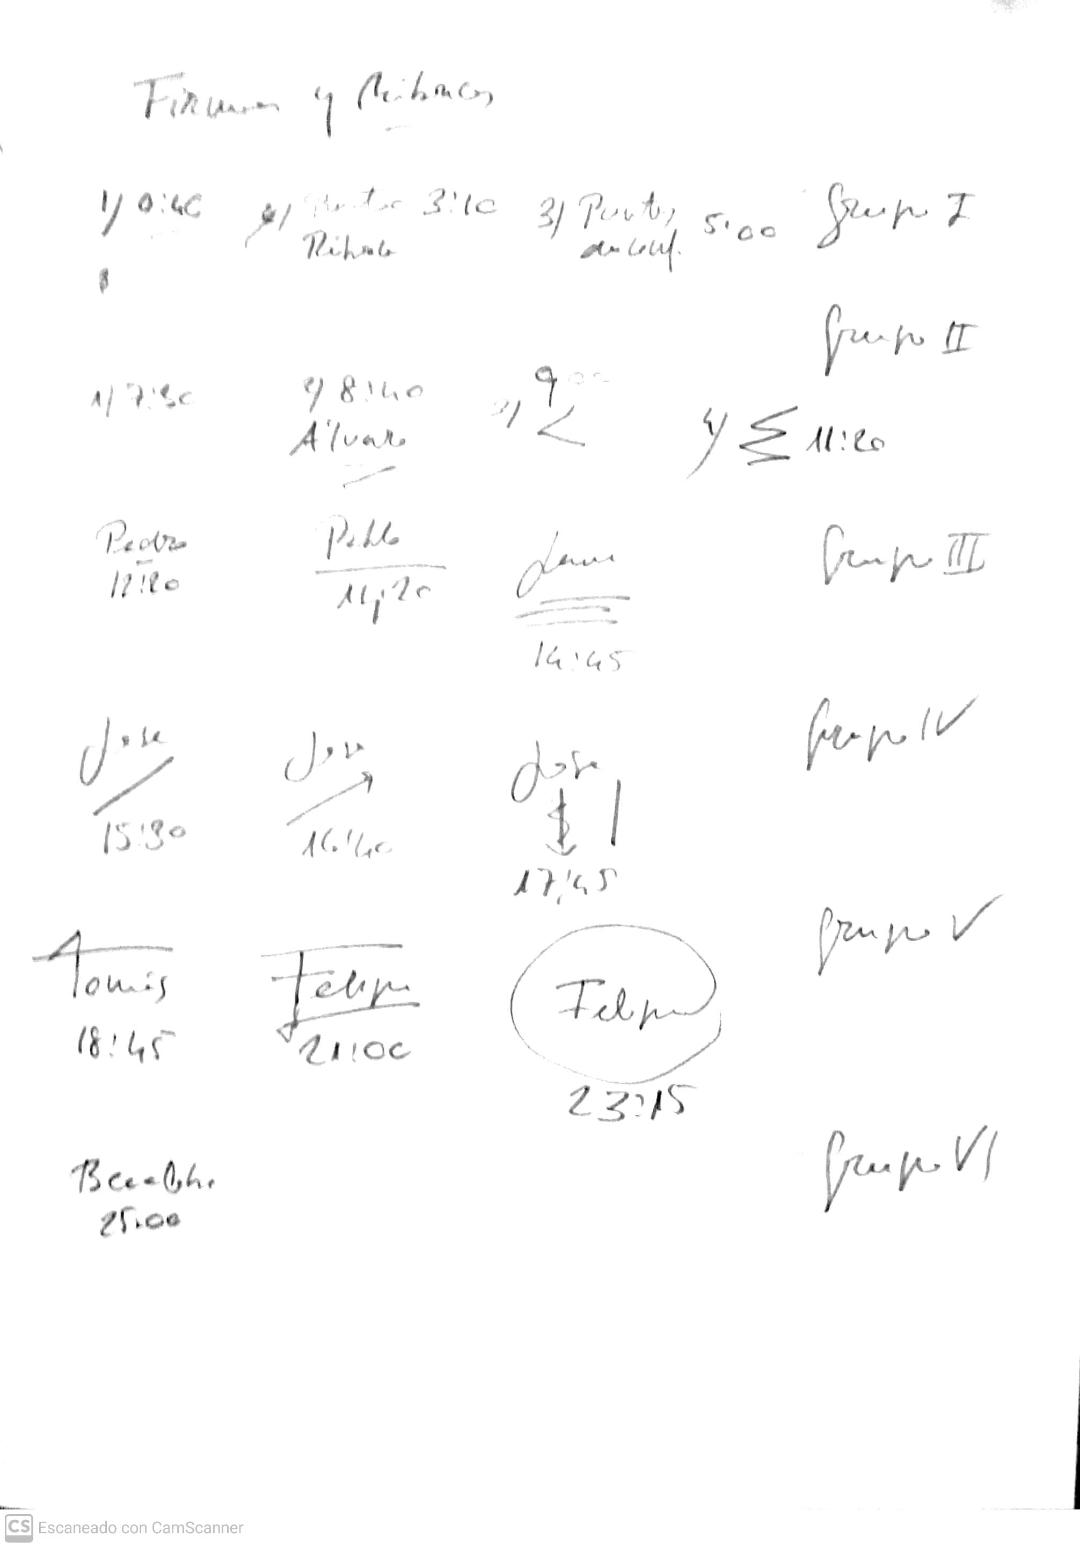 Firmas y Rúbricas
1) 0:40 2) Puntos 3:10 3) Puntos 5:00 Grupo I
Rúbrica de conf.
Grupo II
1) 7:30 2) 8:40 3) 9:00 4) 11:20
Álvaro
Pedro Pablo Grupo III
12:20 14:45
José José José Grupo IV
15:30 16:40 17:45
Tomás Felipe Felipe Grupo V
18:45 21:00 23:15
Grupo VI
25:00
CS Escaneado con CamScanner